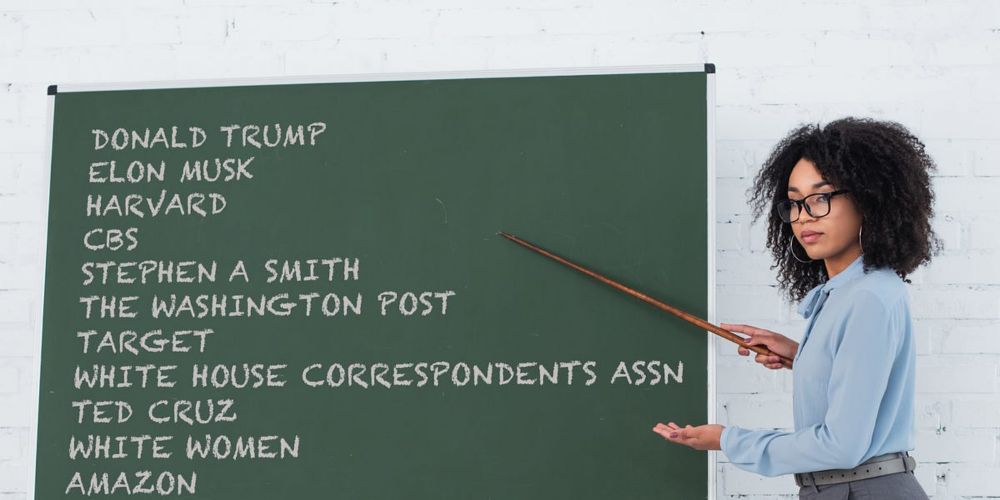 DONALD TRUMP
ELON MUSK
HARVARD
CBS
STEPHEN A SMITH
THE WASHINGTON POST
TARGET
WHITE HOUSE CORRESPONDENTS ASSN
TED CRUZ
WHITE WOMEN
AMAZON